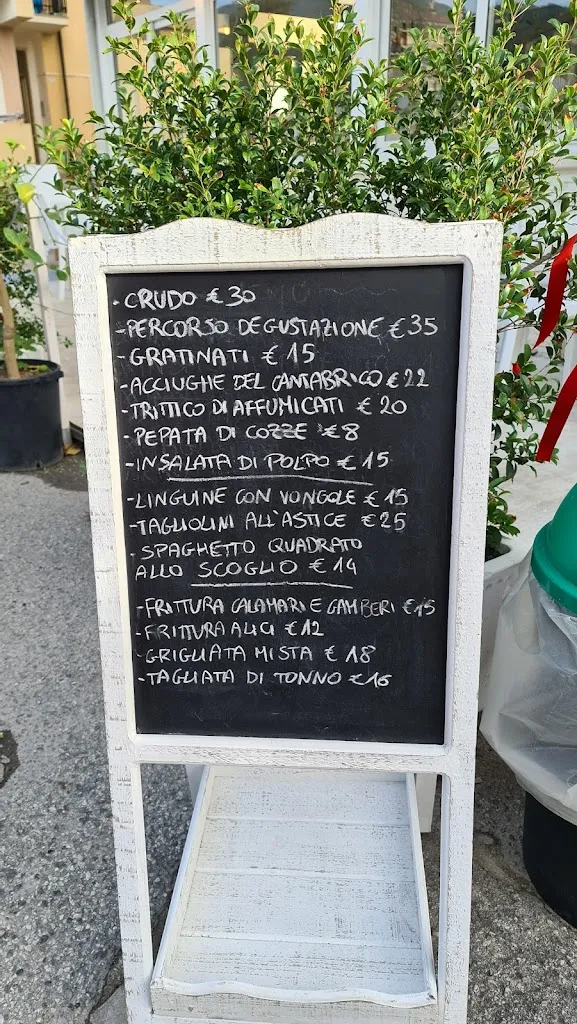 - CRUDO € 30
- PERCORSO DEGUSTAZIONE € 35
- GRATINATI € 15
- ACCIUGHE DEL CANTABRICO € 22
- TRITTICO DI AFFUMICATI € 20
- PEPATA DI COZZE € 8
- INSALATA DI POLPO € 15
- LINGUINE CON VONGOLE € 15
- TAGLIOLINI ALL'ASTICE € 25
- SPAGHETTO QUADRATO
ALLO SCOGLIO € 14
- FRITTURA CALAMARI E GAMBERI € 15
- FRITTURA ALICI € 12
- GRIGLIATA MISTA € 18
- TAGLIATA DI TONNO € 16